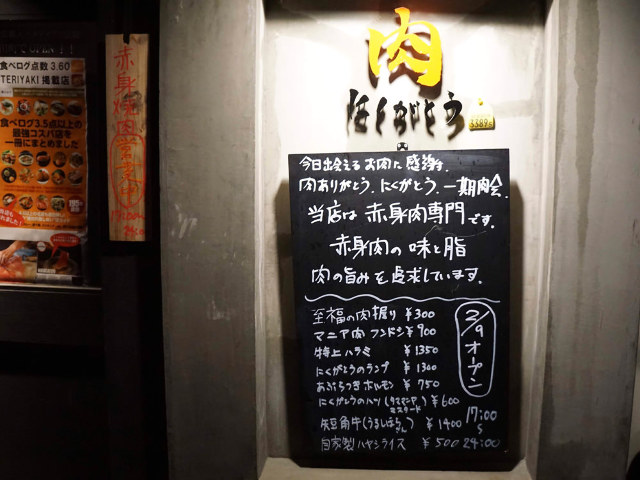 食べログ点数 3.60
TERIYAKI 掲載店
食べログ3.5点以上の
最強コスパ店を
一冊にまとめました
赤身焼肉
肉
にくがとう
3389
今日出会えるお肉に感謝を
肉ありがとう、にくがとう、一期肉会。
当店は 赤身肉専門 です。
赤身肉の 味と脂
肉の旨みを追求しています。
至福の肉握り ¥300
マニア肉 フンドシ ¥900
特上ハラミ ¥1350
にくがとうのランプ ¥1300
あぶらつきホルモン ¥750
にくがとうのハツ(タスマニア マスタード) ¥600
短角牛 ¥1400
自家製ハヤシライス ¥500
2/9 オープン
17:00
〜
24:00